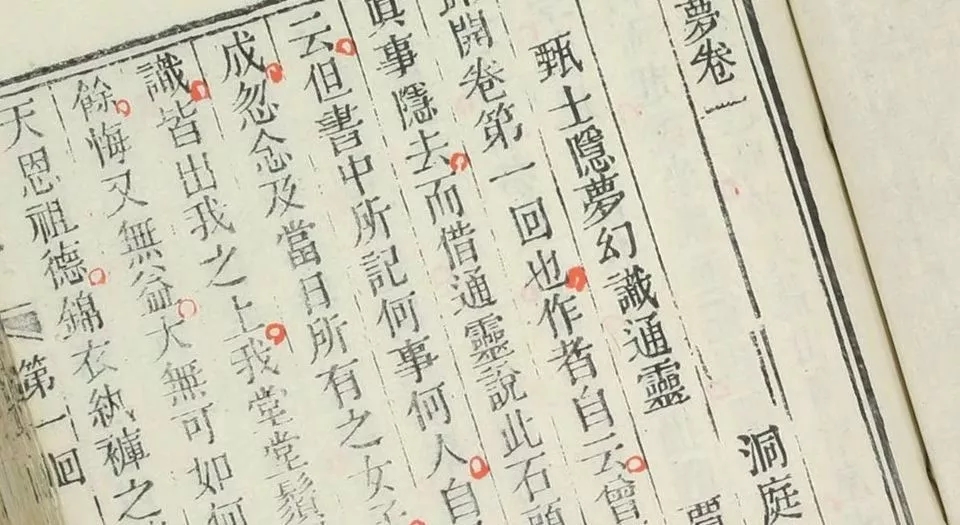 夢卷一
洞庭
甄士隱夢幻識通靈 賈
開卷第一回也作者自云曾
真事隱去而借通靈說此石頭
云但書中所記何事何人自
成忽念及當日所有之女子
識皆出我之上我堂堂鬚
餘悔又無益大無可如何
天恩祖德錦衣紈褲之
第一回